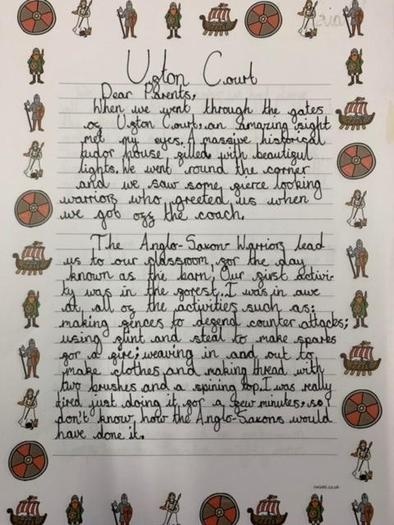 Ufton Court
Dear Parents,
When we went through the gates
of Ufton Court, an amazing sight
met my eyes. A massive historical
tudor house filled with beautiful
lights. We went round the corner
and we saw some fierce looking
warriors who greeted us when
we got off the coach.
The Anglo-Saxon Warriors lead
us to our classroom for the day
known as the barn. Our first activi-
ty was in the forest. I was in awe
at all of the activities such as:
making fences to defend counter attacks;
using flint and steal to make sparks
for a fire; weaving in and out to
make clothes and making thread with
two brushes and a spining top. I was really
tired just doing it for a few minutes, so
don't know how the Anglo-Saxons would
have done it.